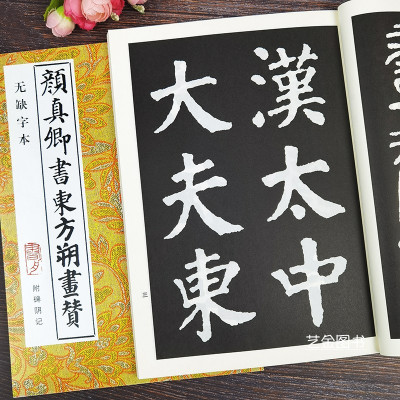 无缺字本
顏真卿書東方朔畫贊
附碑阴记
漢太中
大夫東
艺全图书